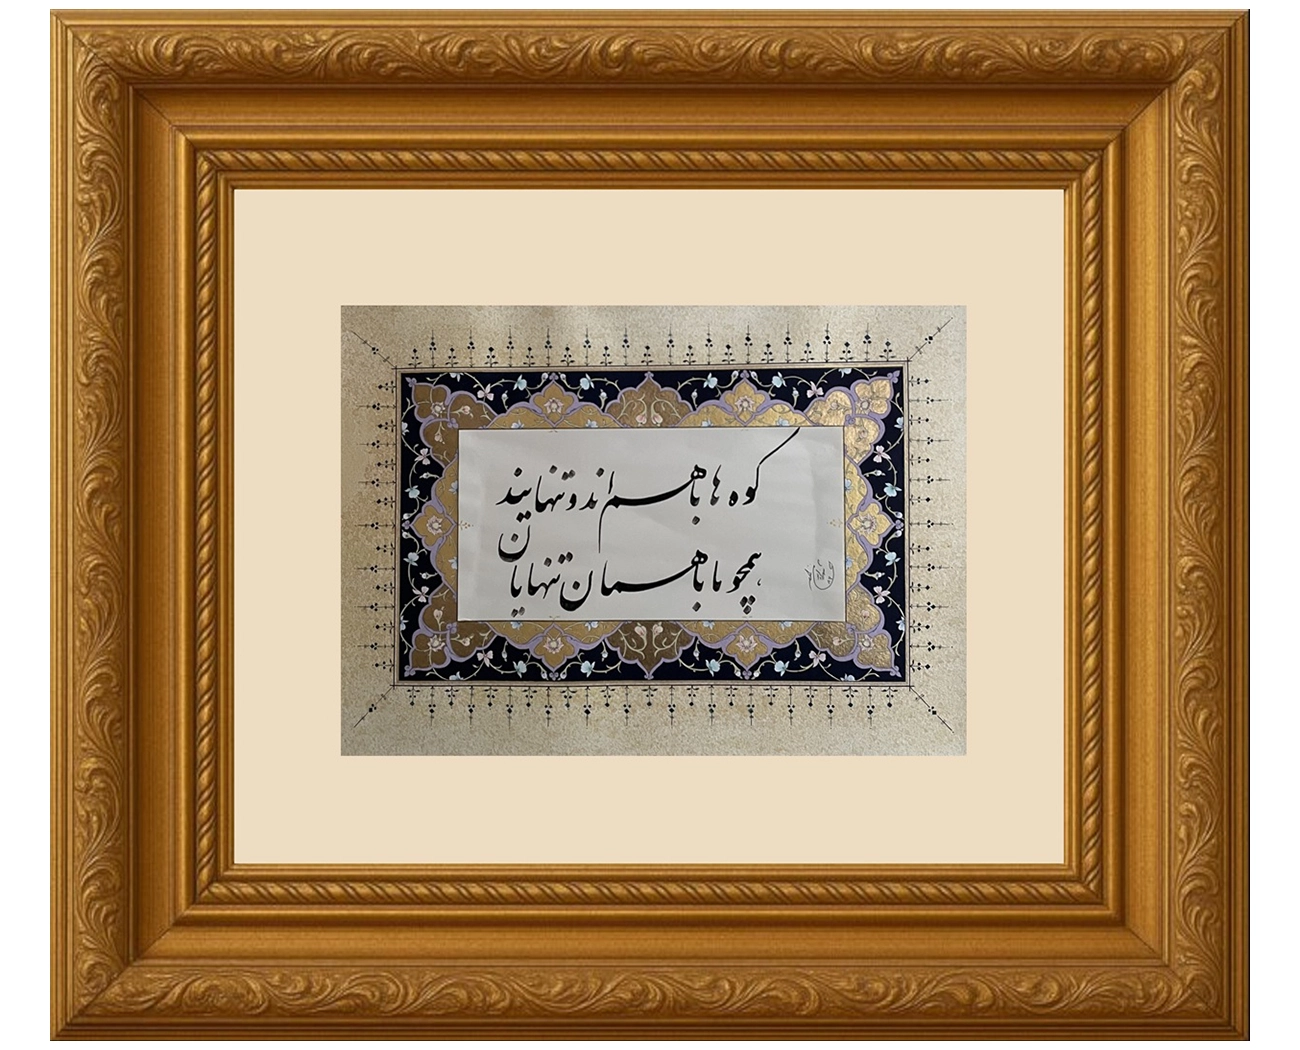 کوه ها با هم اند و تنهایند
همچو ما با همان تنهایان